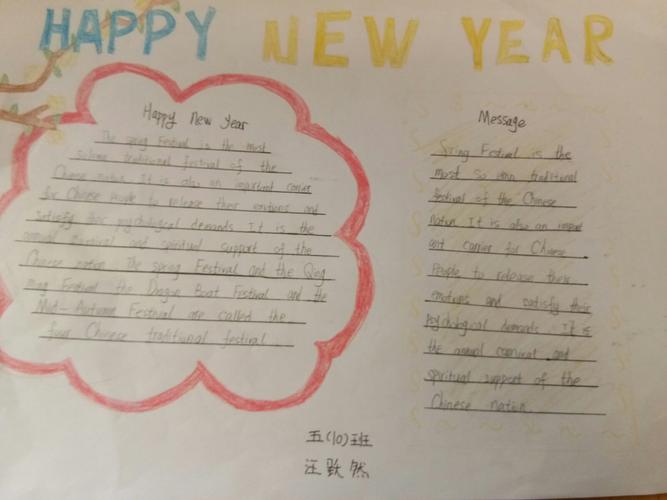 HAPPY NEW YEAR
Happy New Year
The spring Festival is the most
solemn traditional festival of the
Chinese nation. It is also an important carrier
for Chinese people to release their emotions and
satisfy their psychological demands It is the
annual carnival and spiritual support of the
Chinese nation The spring Festival and the Qing
ming Festival the Dragon Boat Festival and the
Mid-Autumn Festival are called the
four Chinese traditional festival
Message
Spring Festival is the
most so lemn traditional
festival of the Chinese
nation It is also an import
ant carrier for Chinese
People to release their
emotions and satisfy their
psychological demands. It is
the annual carnival and
spiritual support of the
Chinese nation.
五(10)班
汪跃然